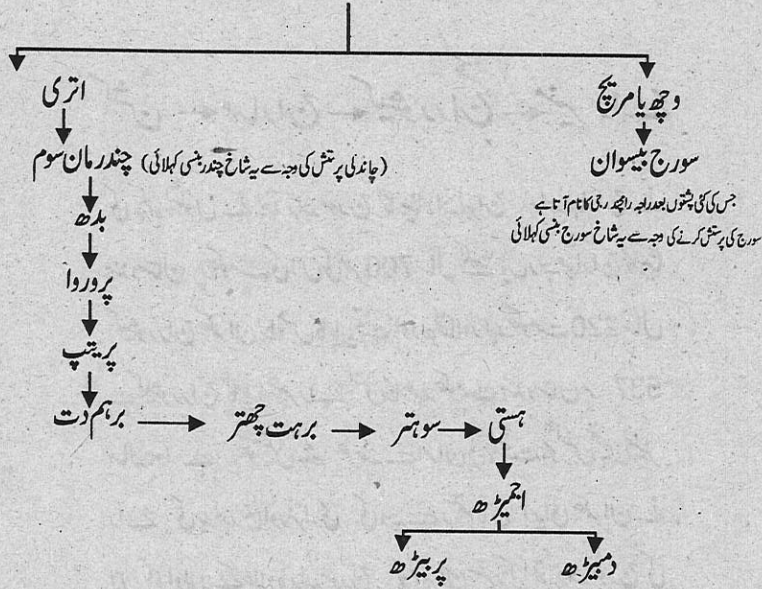 وچھ یا مریچ
سورج بیسوان
جس کی کئی پشتوں بعد راجہ رامچندر جی کا نام آتا ہے
سورج کی پرستش کرنے کی وجہ سے یہ شاخ سورج بنسی کہلائی
اتری
چندرمان سوم (چاند کی پرستش کی وجہ سے یہ شاخ چندر بنسی کہلائی)
بدھ
پروروا
پریتپ
برہم دت
برہت چھتر
سوہتر
ہستی
اجمیڑھ
دمبیڑھ
پربیڑھ